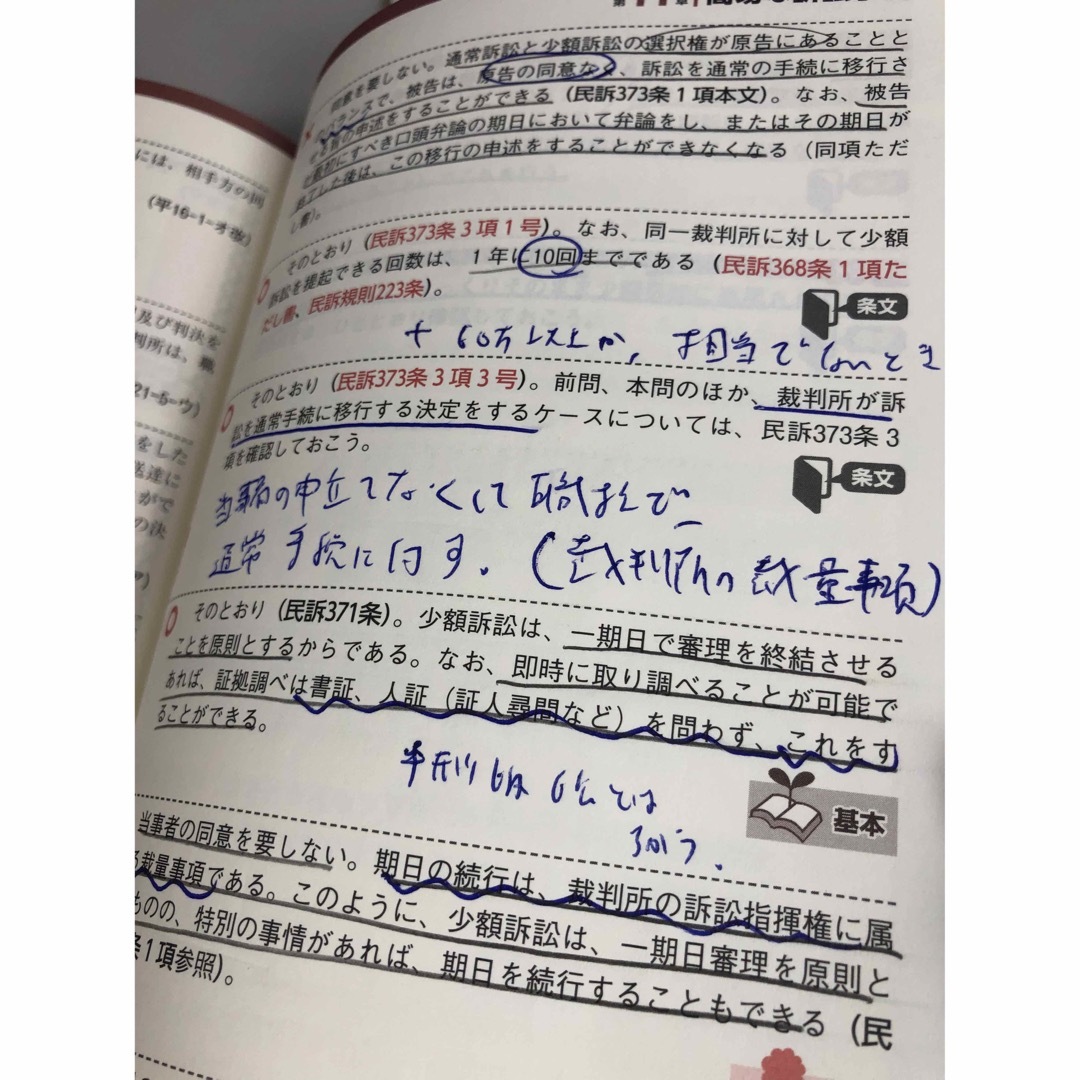 には、相手方の同
(平16-1-オ改)
及び判決を
判所は、職
21-5-ウ)
をした
送達に
がで
の決
第11章
同意を要しない。通常訴訟と少額訴訟の選択権が原告にあることと
バランスで、被告は、原告の同意なく、訴訟を通常の手続に移行さ
せる旨の申述をすることができる(民訴373条1項本文)。なお、被告
が最初にすべき口頭弁論の期日において弁論をし、またはその期日が
終了した後は、この移行の申述をすることができなくなる(同項ただ
し書)。
そのとおり(民訴373条3項1号)。なお、同一裁判所に対して少額
訴訟を提起できる回数は、1年に10回までである(民訴368条1項た
だし書、民訴規則223条)。
条文
+ 60万以上か, 相当でないとき
そのとおり(民訴373条3項3号)。前問、本問のほか、裁判所が訴
訟を通常手続に移行する決定をするケースについては、民訴373条3
項を確認しておこう。
条文
当事者の申立てなくして職権で
通常手続に付す. (裁判所の裁量事項)
そのとおり(民訴371条)。少額訴訟は、一期日で審理を終結させる
ことを原則とするからである。なお、即時に取り調べることが可能で
あれば、証拠調べは書証、人証(証人尋問など)を問わず、これをす
ることができる。
とは
ちがう.
基本
当事者の同意を要しない。期日の続行は、裁判所の訴訟指揮権に属
る裁量事項である。このように、少額訴訟は、一期日審理を原則と
ものの、特別の事情があれば、期日を続行することもできる(民
条1項参照)。